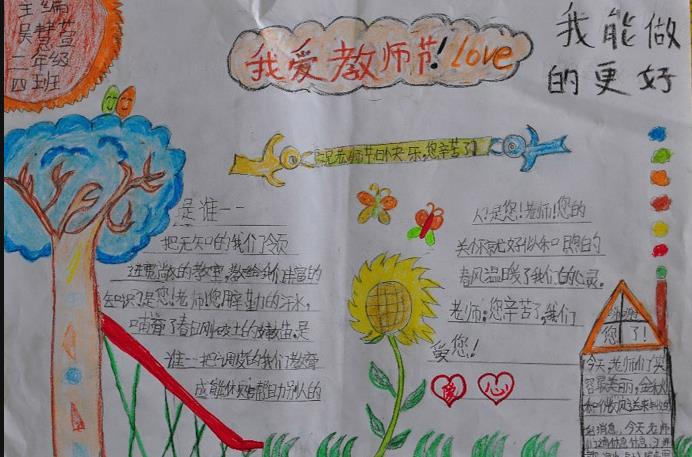 主编
吴慧萱
二年级
四班
我爱教师节！love
我能做
的更好
祝老师节日快乐，您辛苦了！
是谁——
把无知的我们领
进宽敞的教室，教给我们丰富的
知识？是您！老师！您用辛勤的汗水，
哺育了春日刚破土的嫩苗。是
谁——把调皮的我们教育
成能体贴帮助别人的
人？是您！老师！您的
关怀就好似和煦的
春风温暖了我们的心灵。
老师：您辛苦了，我们
爱您！
爱 心
您了！
今天，老师们笑
容最美丽，金秋